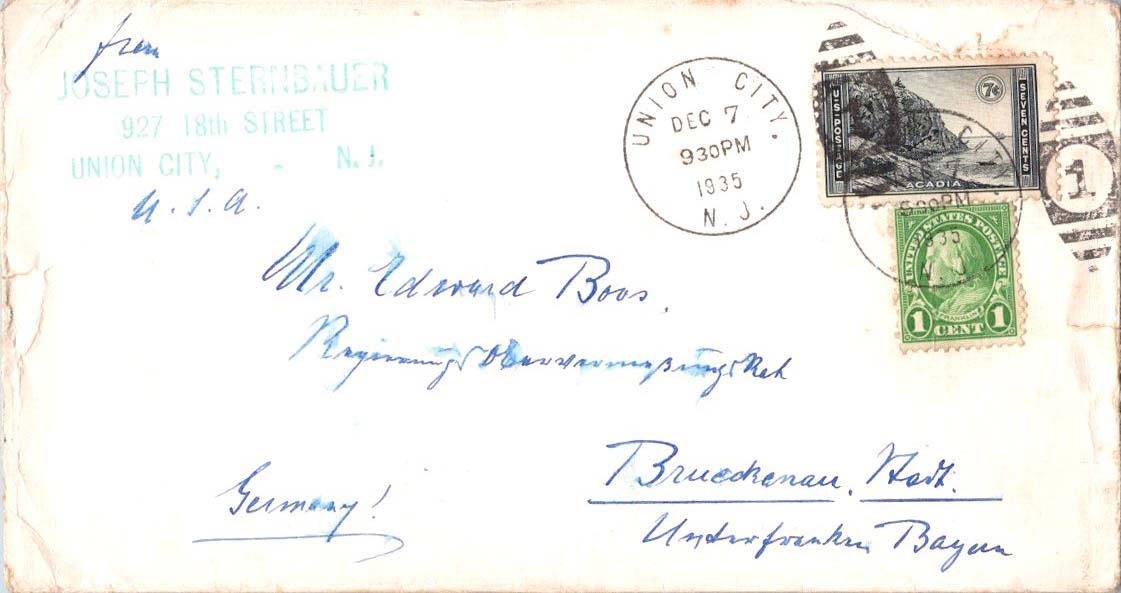 from
JOSEPH STERNBAUER
927 18th STREET
UNION CITY, - N. J.
U. S. A.
UNION CITY,
DEC 7
930PM
1935
N. J.
U·S·POSTAGE
7¢
SEVEN CENTS
ACADIA
1
930PM
1935
N. J.
UNITED STATES POSTAGE
FRANKLIN
1 CENT 1
Mr. Edward Boos,
Regierungs Obervermeßungs Rat
Brueckenau, Stadt.
Germany!
Unterfranken Bayern